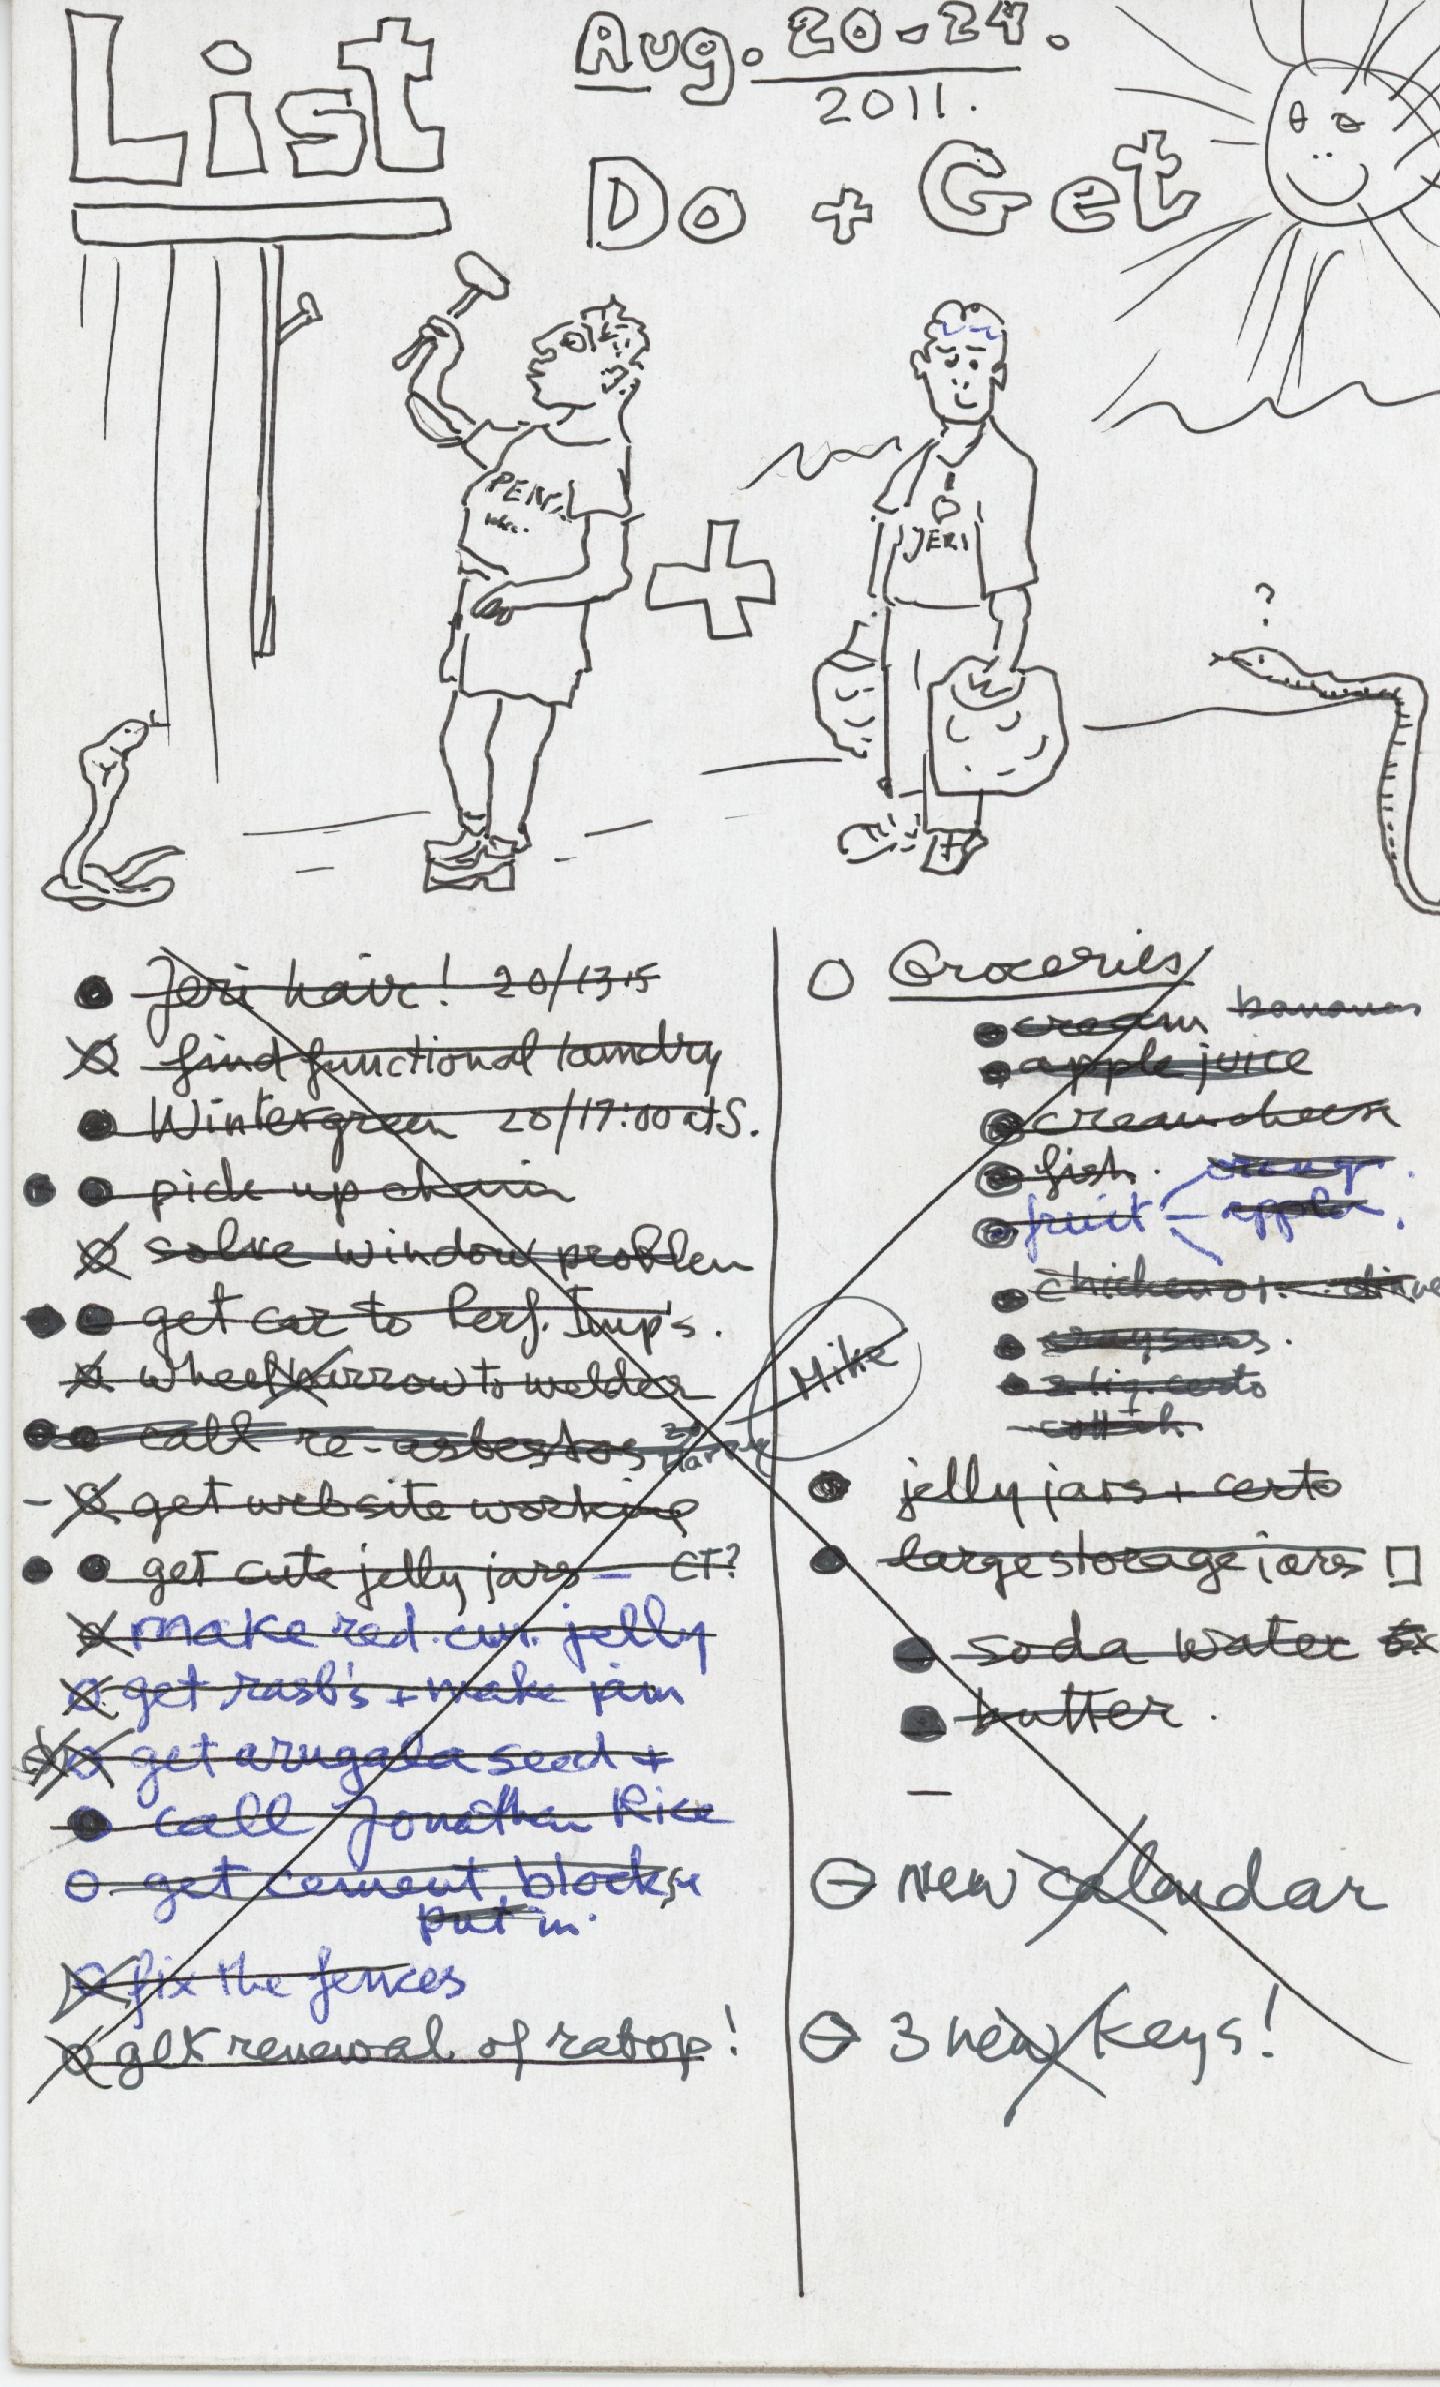 List
Aug. 20-24.
2011.
Do + Get
JERI
?
Jeri hair! 20/1315
find functional laundry
Wintergreen 20/17:00 at S.
pick up chain
solve window problem
get car to Perf. Imp's.
wheelbarrow to welder
call re-asbestos
get website working
get cute jelly jars - CT?
make red. cur. jelly
get rasb's + make jam
get arugala seed +
call Jonathan Rice
get cement blocks
put in.
fix the fences
get renewal of ratop!
Mike
Groceries
cream bananas
apple juice
cream cheese
fish.
fruit - apples.
chicken
jelly jars + certo
large storage jars
soda water
butter.
new calendar
3 new keys!